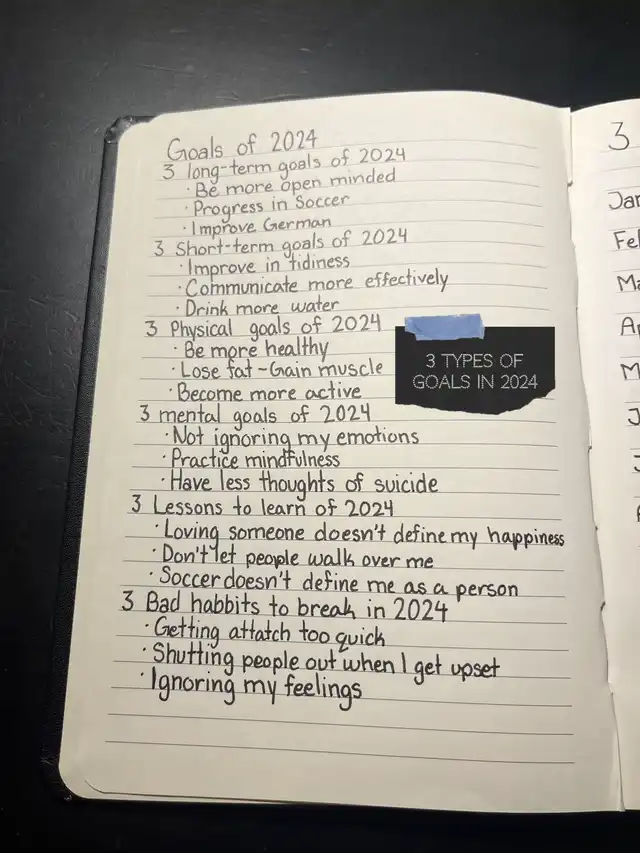 Goals of 2024
3 long-term goals of 2024
· Be more open minded
· Progress in Soccer
· Improve German
3 Short-term goals of 2024
· Improve in tidiness
· Communicate more effectively
· Drink more water
3 Physical goals of 2024
· Be more healthy
· Lose fat - Gain muscle
· Become more active
3 mental goals of 2024
· Not ignoring my emotions
· Practice mindfulness
· Have less thoughts of suicide
3 Lessons to learn of 2024
· Loving someone doesn't define my happiness
· Don't let people walk over me
· Soccer doesn't define me as a person
3 Bad habbits to break in 2024
· Getting attatch too quick
· Shutting people out when I get upset
· Ignoring my feelings
3 TYPES OF
GOALS IN 2024
3